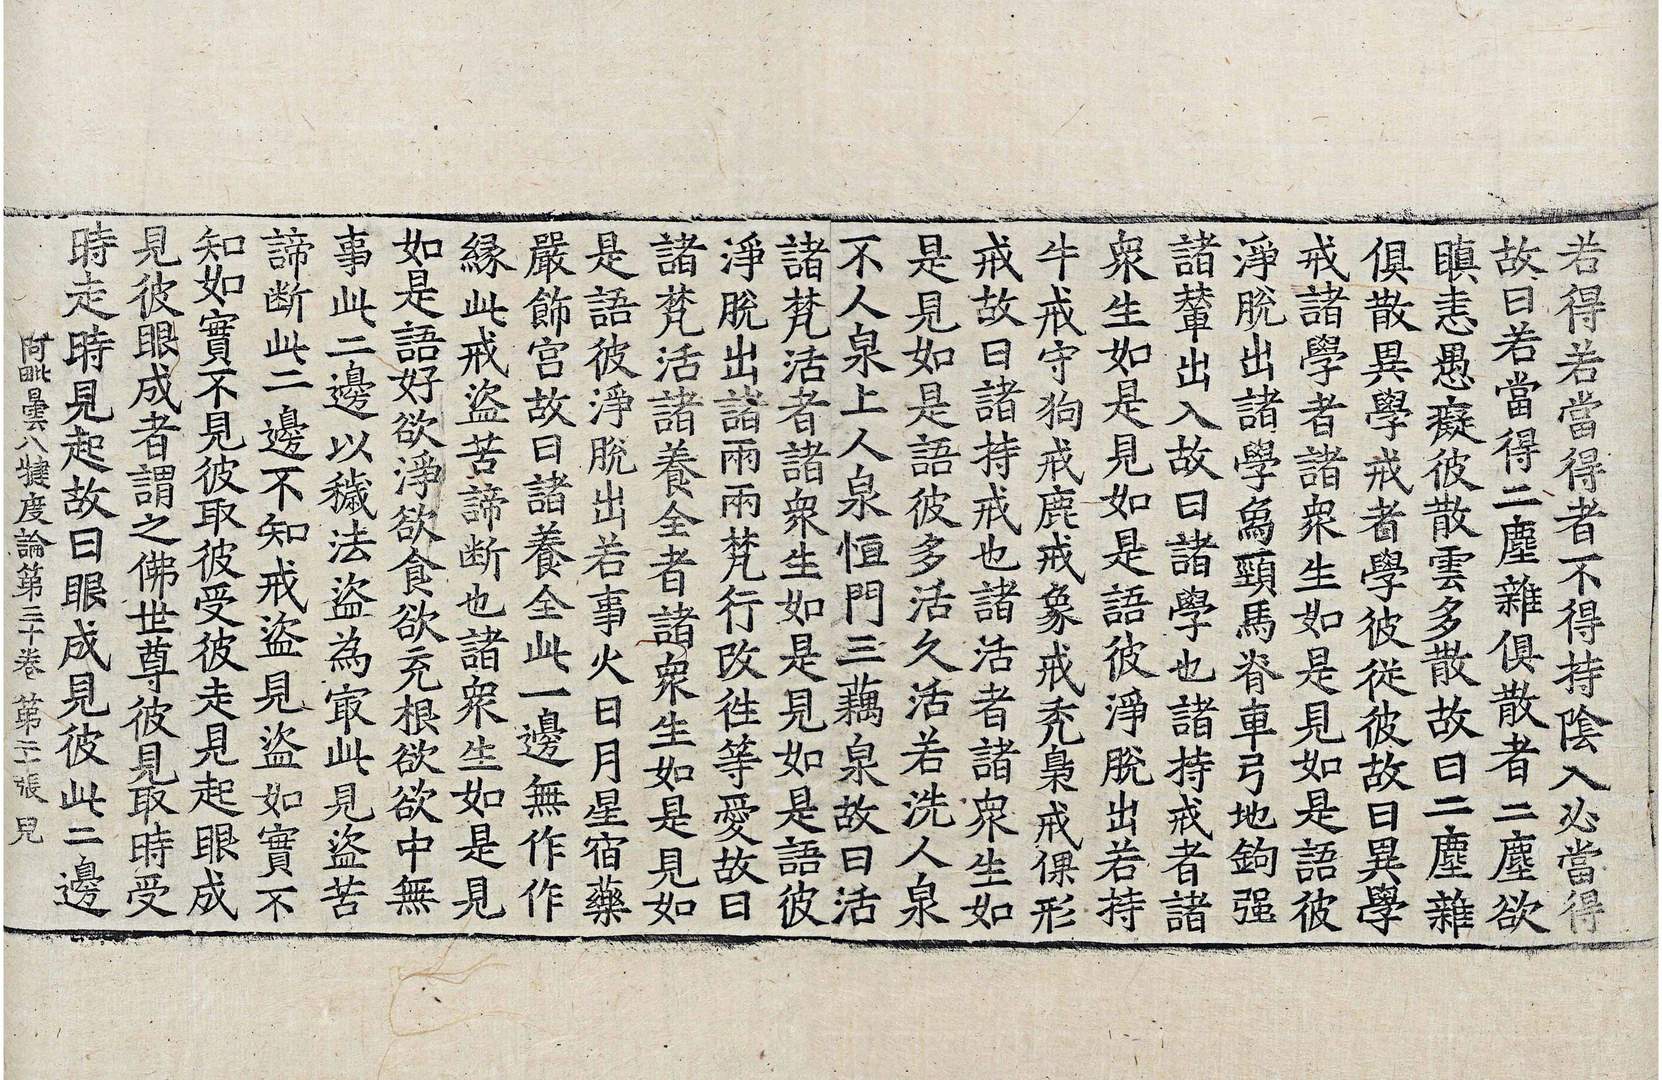 若得若當得者不得持陰入必當得
故曰若當得二塵雜俱散者二塵欲
瞋恚愚癡彼散雲多散故曰二塵雜
俱散異學戒者學彼從彼故曰異學
戒諸學者諸衆生如是見如是語彼
淨脫出諸學爲頸馬脊車弓地鉤强
諸輦出入故曰諸學也諸持戒者諸
衆生如是見如是語彼淨脫出若持
牛戒守狗戒鹿戒象戒禿梟戒倮形
戒故曰諸持戒也諸活者諸衆生如
是見如是語彼多活久活若洗人泉
不人泉上人泉恒門三藕泉故曰活
諸梵活者諸衆生如是見如是語彼
淨脫出諸兩兩梵行改徃等愛故曰
諸梵活諸養全者諸衆生如是見如
是語彼淨脫出若事火日月星宿藥
嚴飾宫故曰諸養全此一邊無作作
縁此戒盜苦諦斷也諸衆生如是見
如是語好欲淨欲食欲充根欲欲中無
事此二邊以穢法盜為㝡此見盜苦
諦断此二邊不知戒盜見盜如實不
知如實不見彼取彼受彼走見起眼成
見彼眼成者謂之佛世尊彼見取時受
時走時見起故曰眼成見彼此二邊
阿毗曇八犍度論第三十卷 第二十張 見